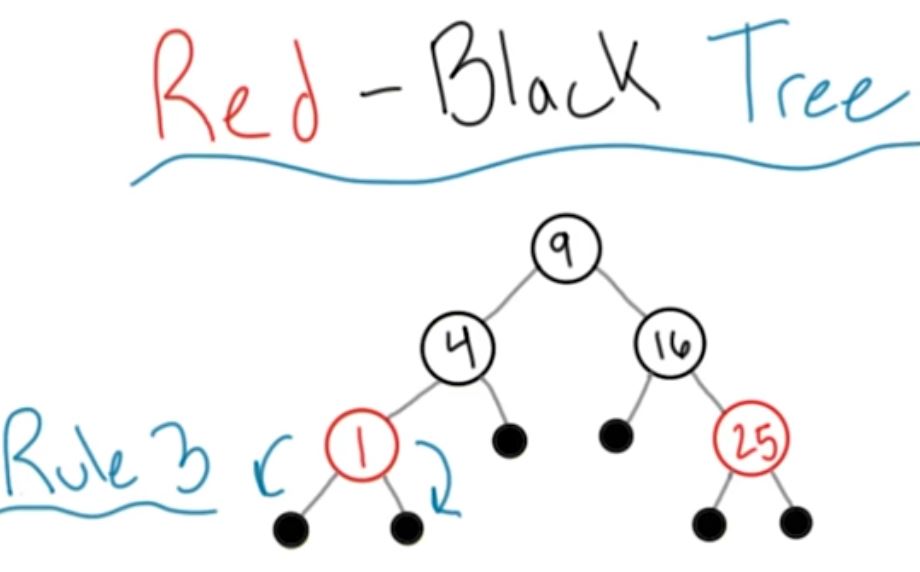 Red-Black Tree
9
4 16
Rule 3 1 25